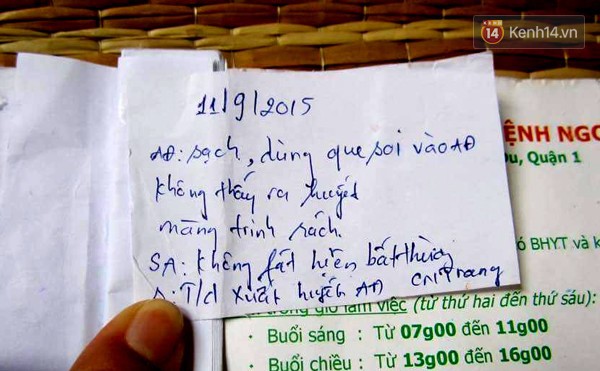 14 Kenh14.vn
11/9/2015
AĐ: sạch, dùng que soi vào AĐ
không thấy ra huyết
màng trinh rách.
SA: không fát hiện bất thường
T/d xuất huyết AĐ CN Trang
ỆNH NGO
u, Quận 1
ó BHYT và k
giờ làm việc (từ thứ hai đến thứ sáu):
· Buổi sáng : Từ 07g00 đến 11g00
· Buổi chiều : Từ 13g00 đến 16g00